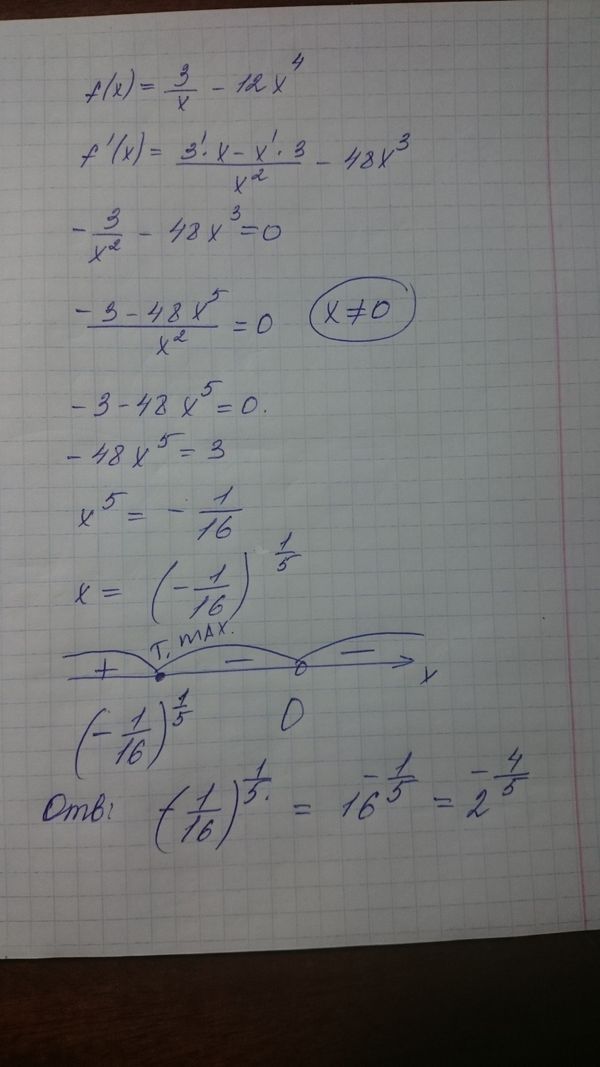 f(x) = 3/x - 12x^4
f'(x) = (3'·x - x'·3)/x^2 - 48x^3
-3/x^2 - 48x^3 = 0
(-3 - 48x^5)/x^2 = 0   x ≠ 0
-3 - 48x^5 = 0.
-48x^5 = 3
x^5 = -1/16
x = (-1/16)^(1/5)
т. max.
+ - - x
(-1/16)^(1/5) 0
Отв: (-1/16)^(1/5). = 16^(-1/5) = 2^(-4/5)